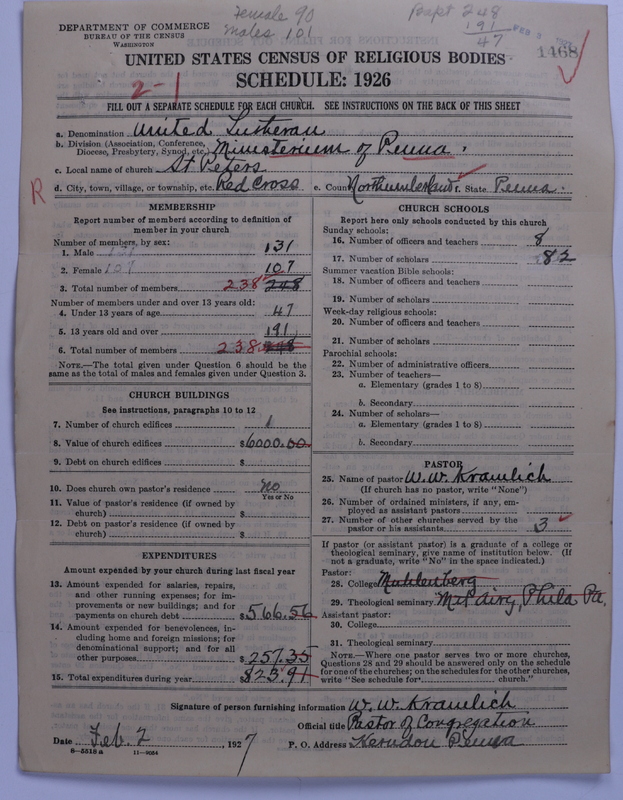 Female 90
males 101
Bapt 248
191
47
DEPARTMENT OF COMMERCE
BUREAU OF THE CENSUS
WASHINGTON
1468
UNITED STATES CENSUS OF RELIGIOUS BODIES
SCHEDULE: 1926
2-1
FILL OUT A SEPARATE SCHEDULE FOR EACH CHURCH. SEE INSTRUCTIONS ON THE BACK OF THIS SHEET
a. Denomination United Lutheran
b. Division (Association, Conference, Diocese, Presbytery, Synod, etc.) Ministerium of Penna.
c. Local name of church St Peters
R
d. City, town, village, or township, etc. Red Cross e. County Northumberland f. State Penna.
MEMBERSHIP
Report number of members according to definition of member in your church
Number of members, by sex:
1. Male 131
2. Female 107 107
3. Total number of members 238 248
Number of members under and over 13 years old:
4. Under 13 years of age 47
5. 13 years old and over 191
6. Total number of members 238 248
NOTE.—The total given under Question 6 should be the same as the total of males and females given under Question 3.
CHURCH BUILDINGS
See instructions, paragraphs 10 to 12
7. Number of church edifices 1
8. Value of church edifices $6000.00
9. Debt on church edifices $
10. Does church own pastor's residence No
Yes or No
11. Value of pastor's residence (if owned by church) $
12. Debt on pastor's residence (if owned by church) $
EXPENDITURES
Amount expended by your church during last fiscal year
13. Amount expended for salaries, repairs, and other running expenses; for improvements or new buildings; and for payments on church debt $566.56
14. Amount expended for benevolences, including home and foreign missions; for denominational support; and for all other purposes $257.35
15. Total expenditures during year $823.91
CHURCH SCHOOLS
Report here only schools conducted by this church
Sunday schools:
16. Number of officers and teachers 8
17. Number of scholars 82
Summer vacation Bible schools:
18. Number of officers and teachers
19. Number of scholars
Week-day religious schools:
20. Number of officers and teachers
21. Number of scholars
Parochial schools:
22. Number of administrative officers
23. Number of teachers—
a. Elementary (grades 1 to 8)
b. Secondary
24. Number of scholars—
a. Elementary (grades 1 to 8)
b. Secondary
PASTOR
25. Name of pastor W. W. Kramlich
(If church has no pastor, write "None")
26. Number of ordained ministers, if any, employed as assistant pastors
27. Number of other churches served by the pastor or his assistants 3
If pastor (or assistant pastor) is a graduate of a college or theological seminary, give name of institution below. (If not a graduate, write "No" in the space indicated.)
Pastor:
28. College Muhlenberg
29. Theological seminary Mt Pairy, Phila Pa.
Assistant pastor:
30. College
31. Theological seminary
NOTE.—Where one pastor serves two or more churches, Questions 28 and 29 should be answered only on the schedule for one of the churches; on the schedules for the other churches, write "See schedule for church."
Signature of person furnishing information W. W. Kramlich
Official title Pastor of Congregation
Date Feb. 2, 1927 P. O. Address Herndon Penna
8—5518 a 11—9034